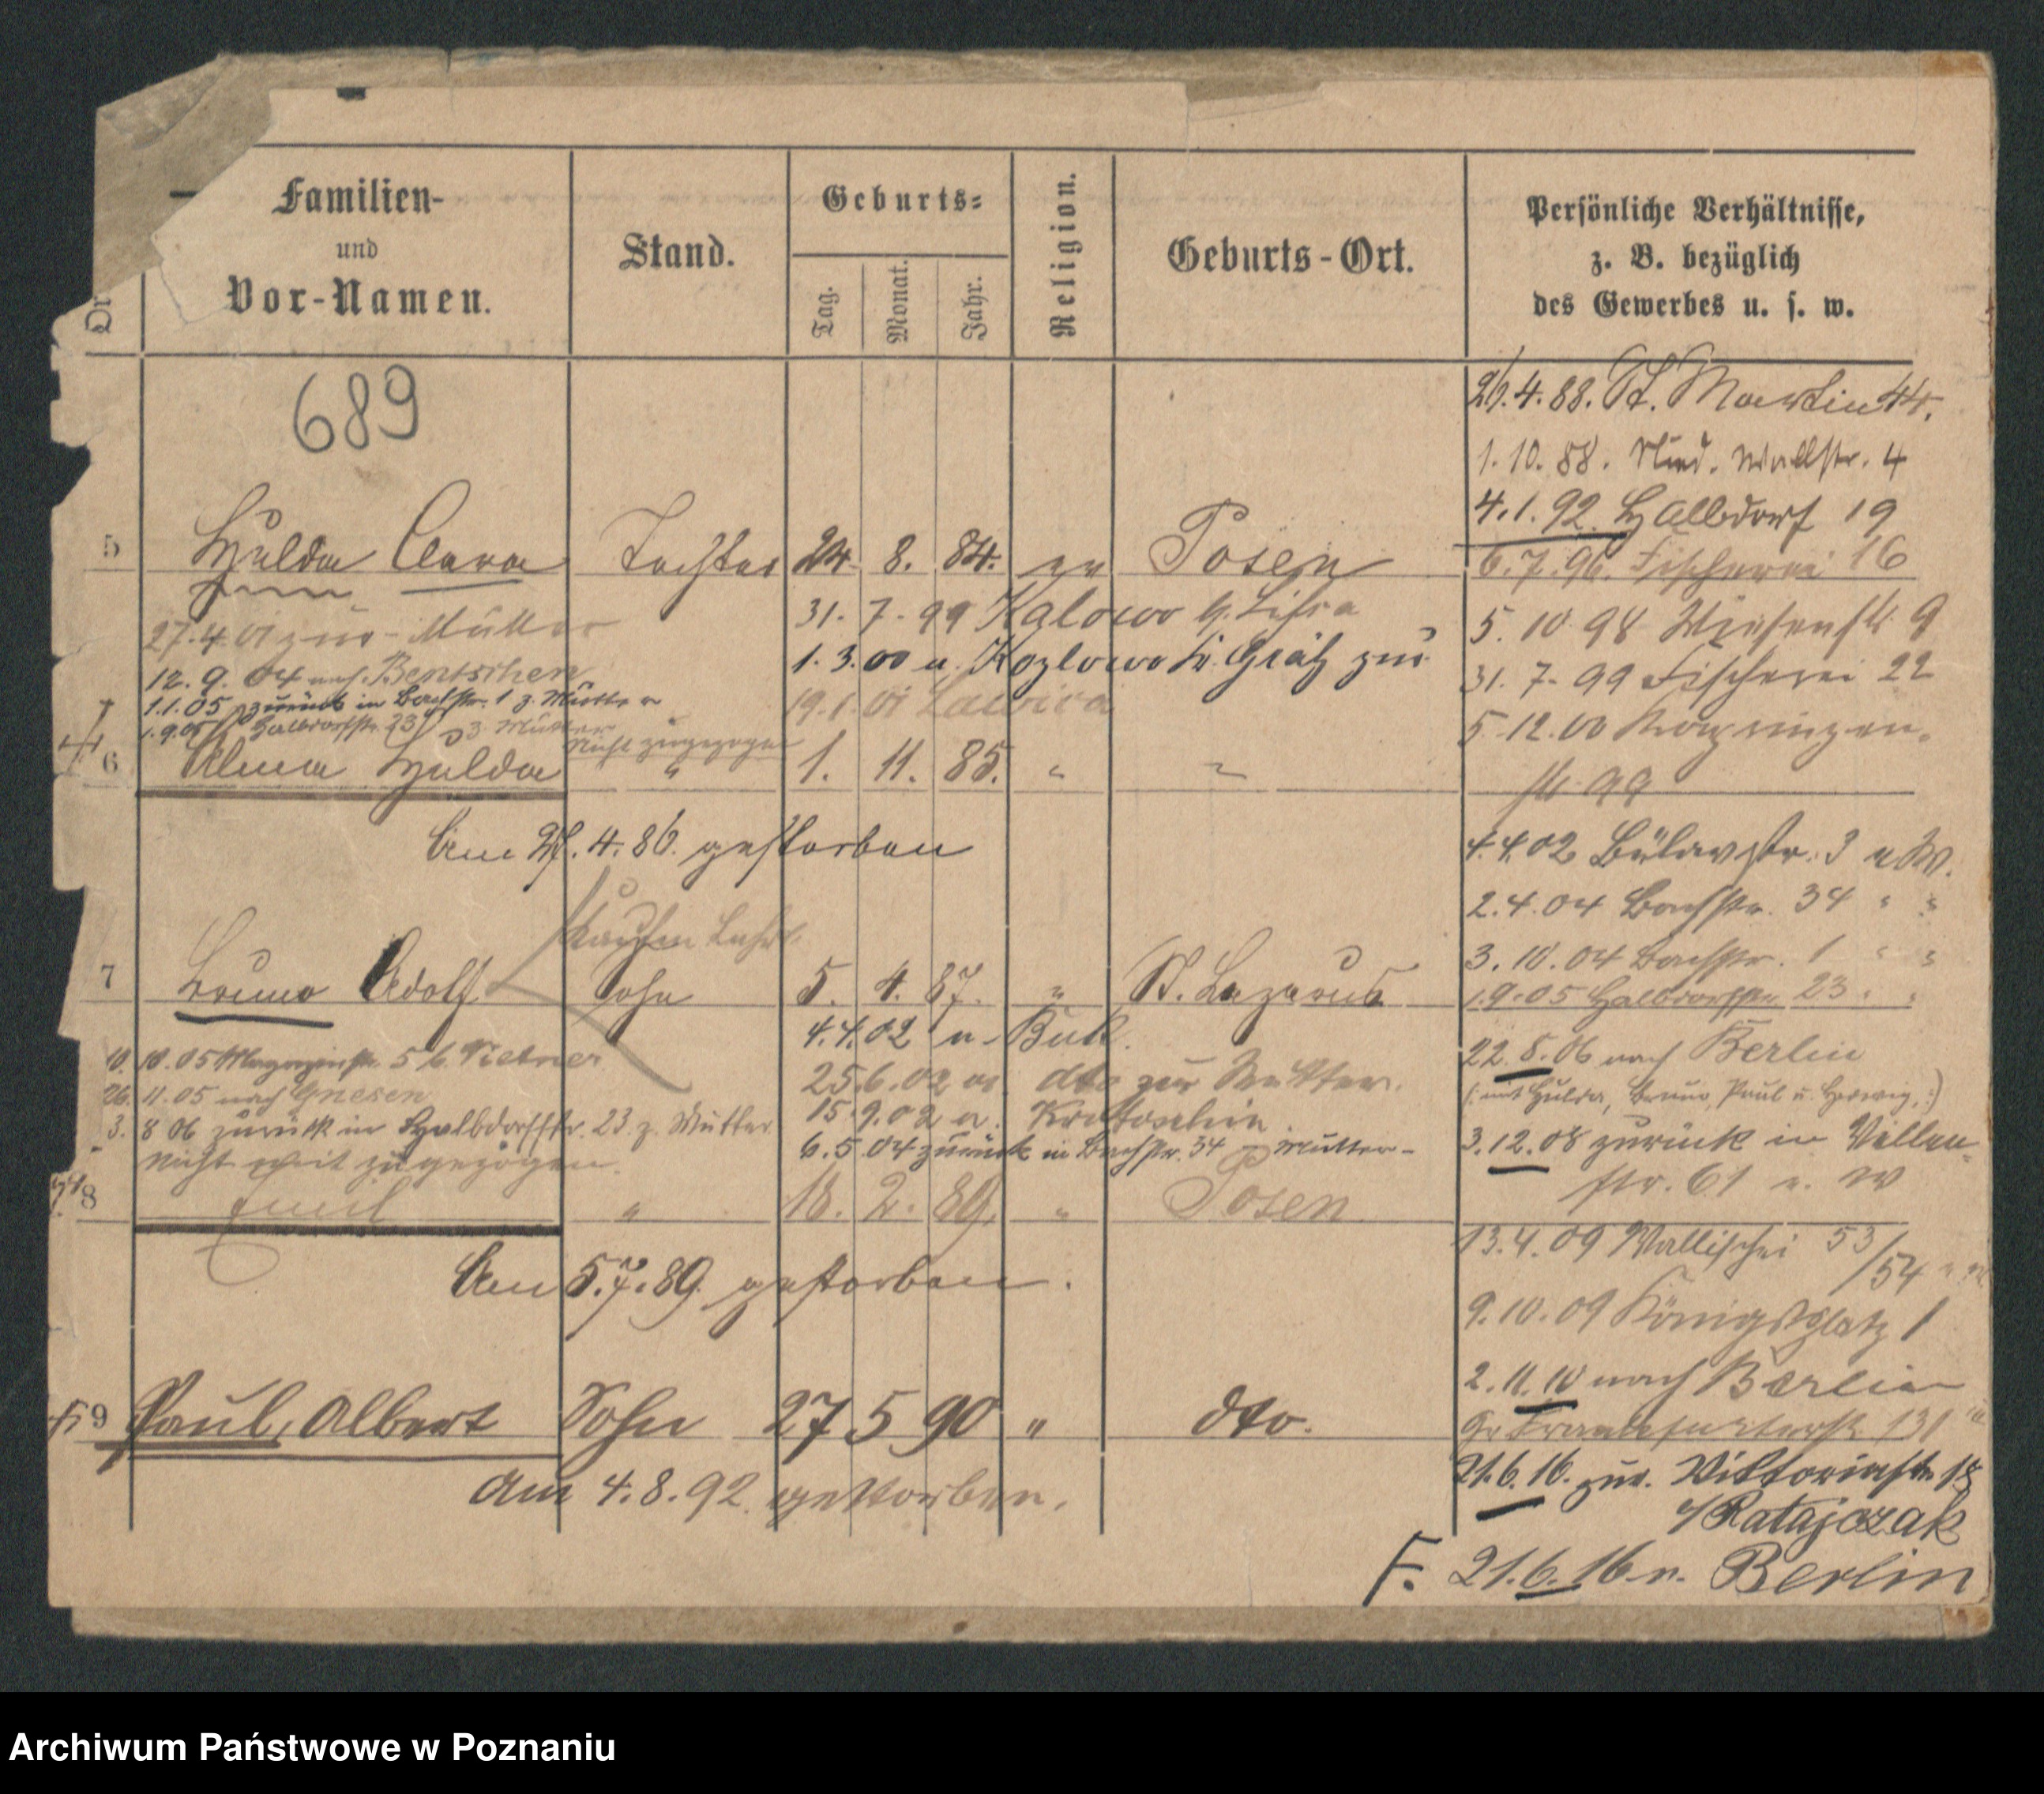 Familien-
und
Vor-Namen.
Stand.
Geburts-
Tag.
Monat.
Jahr.
Religion.
Geburts-Ort.
Persönliche Verhältnisse,
z. B. bezüglich
des Gewerbes u. s. w.
689
29.4.88. St. Martin 44.
1.10.88. Nied. Wallstr. 4
4.1.92. Halbdorf 19
5 Hulda Clara Tochter 24. 8. 84. ev Posen
6.7.96. Fischerei 16
27.4.01 zur Mutter
31. 7. 99
5. 10 98 Wiesenstr 9
12. 9. 04 nach Bentschen
1. 3. 00 n. Kozlowo Kr. Grätz
31. 7. 99 Fischerei 22
1.1.05 zurück in Bachstr. 1 z. Mutter
19.1.01
1.9.05 Halbdorfstr. 23 z. Mutter
5.12.00
Nicht zugezogen
6 Alma Hulda " 1. 11. 85. " "
str 99
Am 4.86. gestorben
4.4.02 Bülowstr. 3 u W.
2.4.04 Bachstr. 34 " "
Kaufm Lehrl.
3.10.04 Bachstr. 1 " "
7 Bruno Adolf Sohn 5. 4. 87. " St. Lazarus
1.9.05 Halbdorfstr 23 " "
4.4.02 n. Buk.
10. 10.05 Magazinstr. 5 b.
22.8.06 nach Berlin
25.6.02 dto zur Mutter.
(: mit Hulda, Bruno, Paul u. Hedwig, :)
26. 11.05 nach Gnesen
15.9.02 n. Krotoschin
3. 8 06 zurück in Halbdorfstr. 23 z. Mutter
3.12.08 zurück in Villen-
6.5.04 zurück in Bachstr. 34 Mutter-
nicht mit zugezogen.
str. 61 u. W
8 Emil " 18. 2. 89. " Posen
13.4.09 Wallischei 53
/54 "
Am 5.7.89. gestorben.
9.10.09 Königsplatz 1
2.11.10 nach Berlin
9 Paul, Albert Sohn 27 5 90 " dto.
Gr Frankfurterstr. 131
Am 4.8.92 gestorben.
21.6.16. zur. Viktoriastr 18
b/ Ratajczak
F. 21.6.16 n. Berlin
Archiwum Państwowe w Poznaniu